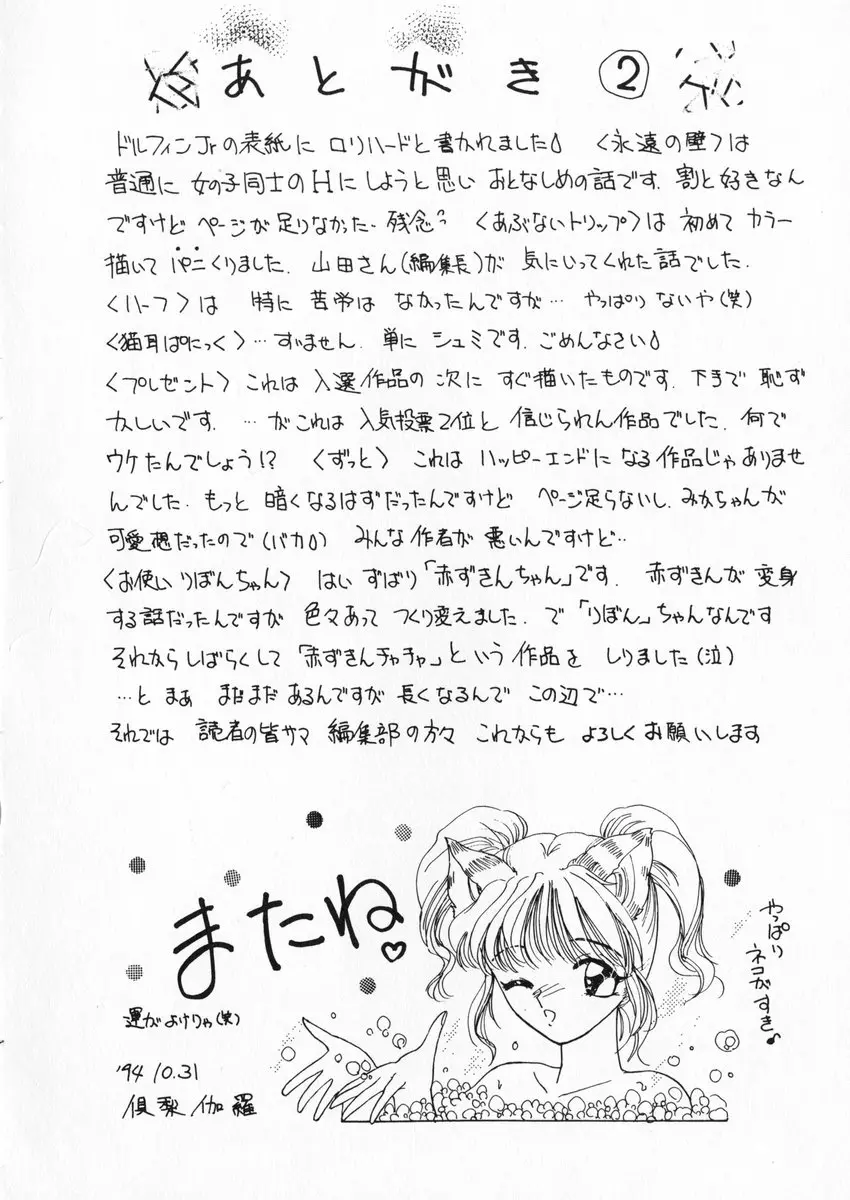 あとがき②
ドルフィンJrの表紙に ロリハードと書かれました♪ 〈永遠の壁〉は
普通に 女の子同士のHにしようと思い おとなしめの話です. 割と好きなん
ですけど ページが足りなかった. 残念? 〈あぶないトリップ〉は 初めて カラー
描いて パニくりました. 山田さん(編集長)が 気にいってくれた話でした.
〈ハーフ〉は 特に 苦労は なかったんですが… やっぱりないや(笑)
〈猫耳ぱにっく〉…すいません. 単に シュミです. ごめんなさい♪
〈プレゼント〉 これは 入選作品の 次に すぐ描いたものです. 下手で 恥ず
かしいです. …がこれは 人気投票2位と 信じられん作品でした. 何で
ウケたんでしょう!? 〈ずっと〉 これは ハッピーエンドになる作品じゃありませ
んでした. もっと 暗くなるはずだったんですけど ページ足らないし. みかちゃんが
可愛想だったので(バカ♪) みんな作者が 悪いんですけど…
〈お使いりぼんちゃん〉 はい ずばり「赤ずきんちゃん」です. 赤ずきんが 変身
する話だったんですが 色々あって つくり変えました. で「りぼん」ちゃんなんです
それからしばらくして「赤ずきんチャチャ」という 作品を しりました(泣)
…と まぁ まだまだ あるんですが 長くなるんで この辺で…
それでは 読者の皆サマ 編集部の方々 これからも よろしくお願いします
またね♡
運がよけりゃ(笑)
'94 10.31
倶梨伽羅
やっぱり
ネコがすき♪